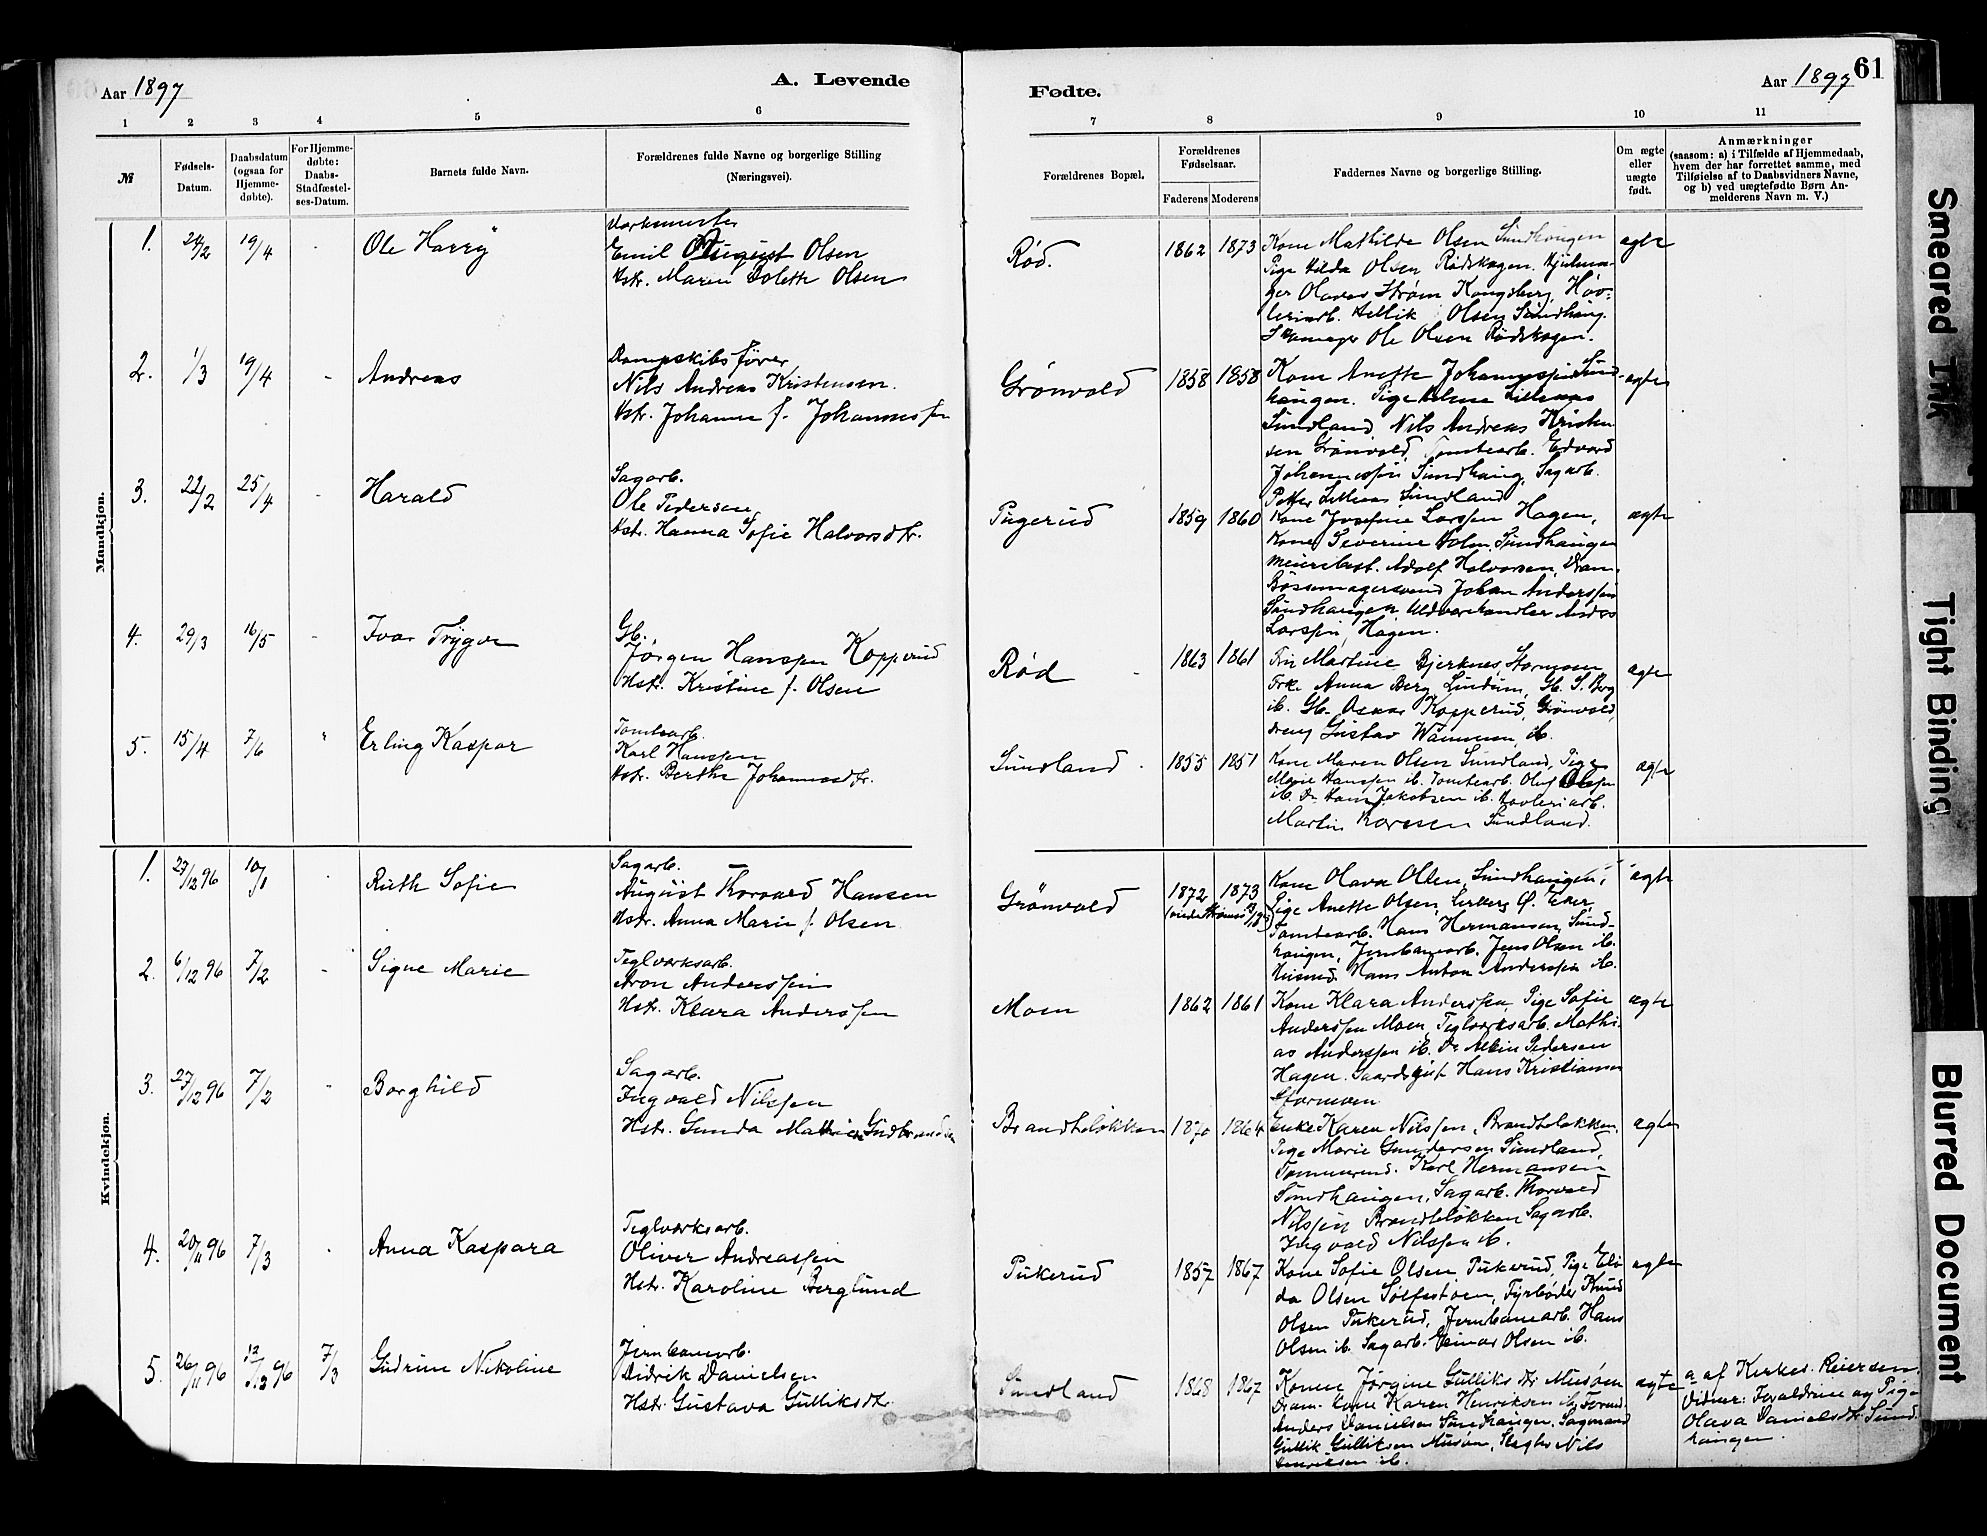 Aar 1897
A. Levende
Fødte.
Aar 1897
61
1 2 3 4 5 6
7 8 9 10 11
№
Fødsels-
Datum.
Daabsdatum
(ogsaa for
Hjemme-
døbte).
For Hjemme-
døbte:
Daabs-
Stadfæstel-
ses-Datum.
Barnets fulde Navn.
Forældrenes fulde Navne og borgerlige Stilling
(Næringsvei).
Forældrenes Bopæl.
Forældrenes
Fødselsaar.
Faderens Moderens
Faddernes Navne og borgerlige Stilling.
Om ægte
eller
uægte
født.
Anmærkninger
(saasom: a) i Tilfælde af Hjemmedaab,
hvem der har forrettet samme, med
Tilføielse af to Daabsvidners Navne,
og b) ved uægtefødte Børn An-
melderens Navn m. V.)
Mandkjøn.
1. 19/4 Ole Harry
Emil August Olsen
Hstr. Maren Olsen
Rød.
1862 1873
Kone Mathilde Olsen Sundhaugen
Pige Hilda Olsen Rødskogen. Hjulma-
ger Olavus Strøm Kongsberg, Høv-
leriarb. Hellik Olsen Sundhaug.
Skomager Ole Olsen Rødskogen.
ægte
2. 1/3 19/4 - Andreas
Dampskibsfører
Nils Andreas Kristensen.
Hstr. Johanne f. Johannessen
Grønvold
1858 1858
Kone Anette Johannessen Sund-
haugen. Pige
Sundland, Nils Andreas Kristen
sen Grønvold, Tomtearb. Edvard
Johannessen Sundhaug, Sagarb.
Petter Sundland
ægte
3. 22/2 25/4 Harald
Sagarb.
Ole Pedersen
Hstr. Hanna Sofie Halvorsdtr.
Pugerud
1859 1860
Kone Josefine Larssen Hagen,
Kone Severine Holm, Sundhaugen
Meieribest. Adolf Halvorsen, Dram.
Bøssemagersvend Johan Anderssen
Sundhaugen Uldvarehandler Anders
Larssen, Hagen.
ægte
4. 29/3 16/5 Ivar Trygve
Gb.
Jørgen Hanssen Kopperud
Hstr. Kristine f. Olsen
Rød
1863 1861
Martine Bjerknes Stormoen
Frk. Anna Berg Lindum, Gb. S. Berg
ib. Gb. Oskar Kopperud, Grønvold,
dreng Gustav ib.
ægte
5. 15/4 7/6 Erling Kaspar
Tomtearb.
Karl Hanssen
Hstr. Berthe Johannesdtr.
Sundland
1855 1851
Kone Maren Olsen Sundland, Pige
Marie Hanssen ib. Tomtearb. Oluf Olsen
ib. Do Hans Jakobsen ib. Høvleriarb.
Martin Sundland.
ægte
Kvindekjøn.
1. 27/12 96 10/1 Ruth Sofie
Sagarb.
August Thorvald Hansen
Hstr. Anna Marie f. Olsen
Grønvold
1872 1873
Kone Olava Olsen, Sundhaugen,
Pige Anette Olsen, Ø. Eker,
Tomtearb. Hans Hermansen Sund-
haugen, Jernbanearb. Jens Olsen ib.
Hans Anton Anderssen ib.
ægte
2. 6/12 96 7/2 - Signe Marie
Teglværksarb.
Aron Anderssen
Hstr. Klara Anderssen
Moen
1862 1861
Kone Klara Anderssen, Pige Sofie
Anderssen Moen, Teglværksarb. Mathi-
as Anderssen ib. Do Albin Pedersen
Hagen. Gaardsgut Hans Kristiansen
Stormoen
ægte
3. 27/12 96 7/2 Borghild
Sagarb.
Ingvald Nilssen
Hstr. Gunda Mathea Gudbrandsen
Brandteløkken
1870 1864
Enke Karen Nilssen, Brandteløkken.
Pige Marie Gundersen Sundland,
Tømmermd. Karl Hermansen
Sundhaugen, Sagarb. Thorvald
Nilssen Brandteløkken Sagarb.
Ingvald Nilssen ib.
ægte
4. 20/11 96 7/3 Anna Kaspara
Teglværksarb.
Oliver Andreassen
Hstr. Karoline Berglund
Pukerud
1857 1867
Kone Sofie Olsen Pukerud, Pige Eli-
da Olsen Solfestøen, Fyrbøder Knud
Olsen Pukerud, Jernbanearb. Hans
Olsen ib. Sagarb. Einar Olsen ib.
ægte
5. 26/11 96 12/12 96 7/3 Gudrun Nikoline
Jernbanearb.
Didrik Danielsen
Hstr. Gustava Gulliksdtr.
Sundland
1868 1867
Konen Jørgine Gulliksdtr Musøen
Dram. Kone Karen Henriksen ib.
Anders Danielsen Sundhaugen. Sagmand
Gullik Gulliksen Musøn, Slagter Nils
Henriksen ib.
ægte
a. af Kirkes. Reiersen,
Vidner: Forældrene og Pige
Olava Danielsdtr. Sund-
haugen.
Smeared Ink
Tight Binding
Blurred Document